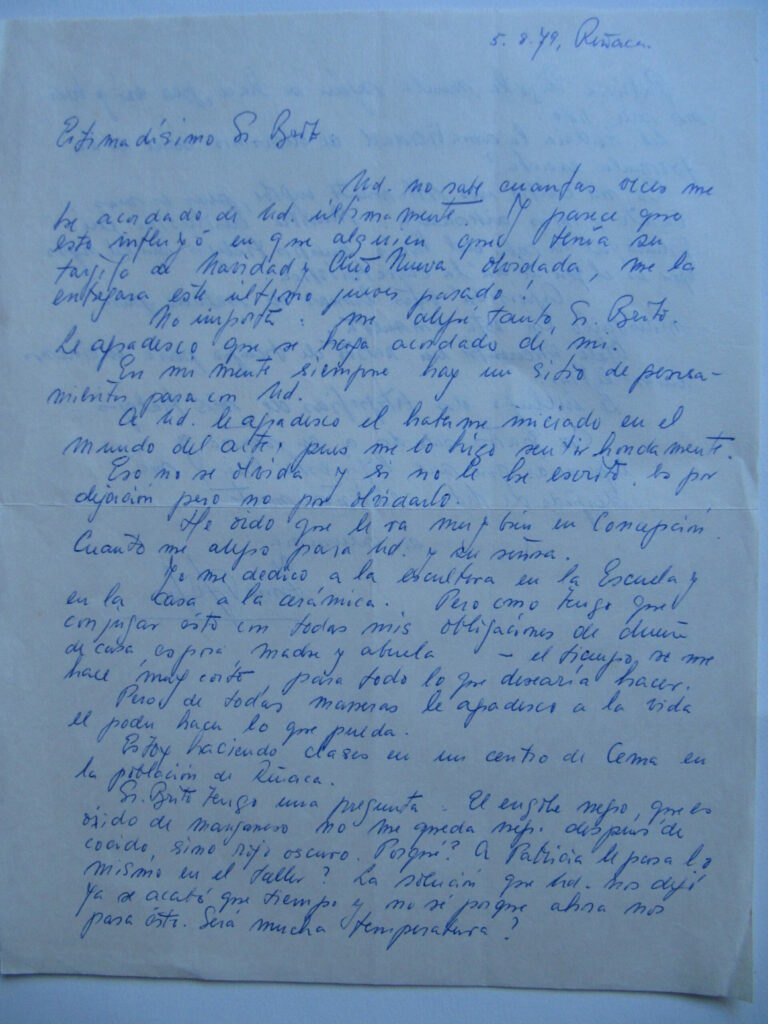 5. 8. 79, Reñaca.
Estimadísimo Sr. Brito
Ud. no sabe cuantas veces me
he acordado de Ud. últimamente. Y parece que
esto influyó en que alguien que tenía su
tarjeta de Navidad y Año Nueva olvidada, me la
entregara este último jueves pasado!
No importa. me alegré tanto, Sr. Brito.
Le agradesco que se haya acordado de mi.
En mi mente siempre hay un sitio de pensa-
mientos para con Ud.
A Ud. le agradesco el haberme iniciado en el
mundo del arte, pues me lo hizo sentir hondamente.
Eso no se olvida y si no le he escrito es por
dejación pero no por olvidarlo.
He oido que le va muy bien en Concepción.
Cuanto me alegro para Ud. y su señora.
Yo me dedico a la escultura en la Escuela y
en la casa a la cerámica. Pero como tengo que
conjugar ésto con todas mis obligaciones de dueña
de casa esposa madre y abuela - el tiempo se me
hace muy corto para todo lo que desearía hacer.
Pero de todas maneras le agradesco a la vida
el poder hacer lo que pueda.
Estoy haciendo clases en un centro de Cema en
la población de Reñaca.
Sr. Brito tengo una pregunta. El engobe negro, que es
óxido de manganeso no me queda negro despues de
cocido, sino rojo oscuro. Porqué? A Patricia le pasa lo
mismo en el taller? La solución que Ud. nos dejó
ya se acabó que tiempo y no sé porque ahora nos
pasa ésto. Será mucha temperatura?